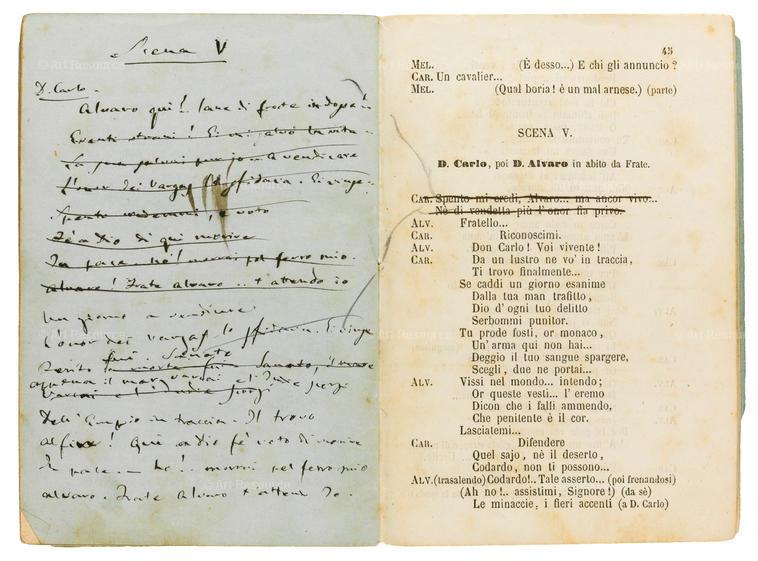 Scena V
D. Carlo.
Alvaro qui! lana di frate indossa!
Eventi strani! Ei mi salvò la vita
La sua
L'onor dei Vargas
voto
Fe' a Dio di qui morire
In pace. no! morrai pel ferro mio.
Alvaro! Frate Alvaro.. t'attendo io
Un giorno a vendicare
L'onor dei Vargas lo sfidava.
fui. Sanato
Ferito
appena il mar varcai e l'Indie
dell'empio in traccia. Il trovo
alfine! Qui a dio fe' voto di morire
In pace. – no!.. morrai pel ferro mio
alvaro. Frate Alvaro t'attend' Io.
45
MEL. (È desso...) E chi gli annuncio?
CAR. Un cavalier...
MEL. (Qual boria! è un mal arnese.) (parte)
SCENA V.
D. Carlo, poi D. Alvaro in abito da Frate.
CAR. Spento mi credi, Alvaro... ma ancor vivo...
Nè di vendetta più l'onor fia privo.
ALV. Fratello...
CAR. Riconoscimi.
ALV. Don Carlo! Voi vivente!
CAR. Da un lustro ne vo' in traccia,
Ti trovo finalmente...
Se caddi un giorno esanime
Dalla tua man trafitto,
Dio d'ogni tuo delitto
Serbommi punitor.
Tu prode fosti, or monaco,
Un'arma qui non hai...
Deggio il tuo sangue spargere,
Scegli, due ne portai...
ALV. Vissi nel mondo... intendo;
Or queste vesti... l'eremo
Dicon che i falli ammendo,
Che penitente è il cor.
Lasciatemi...
CAR. Difendere
Quel sajo, nè il deserto,
Codardo, non ti possono...
ALV. (trasalendo) Codardo!.. Tale asserto... (poi frenandosi)
(Ah no!.. assistimi, Signore!) (da sè)
Le minaccie, i fieri accenti (a D. Carlo)